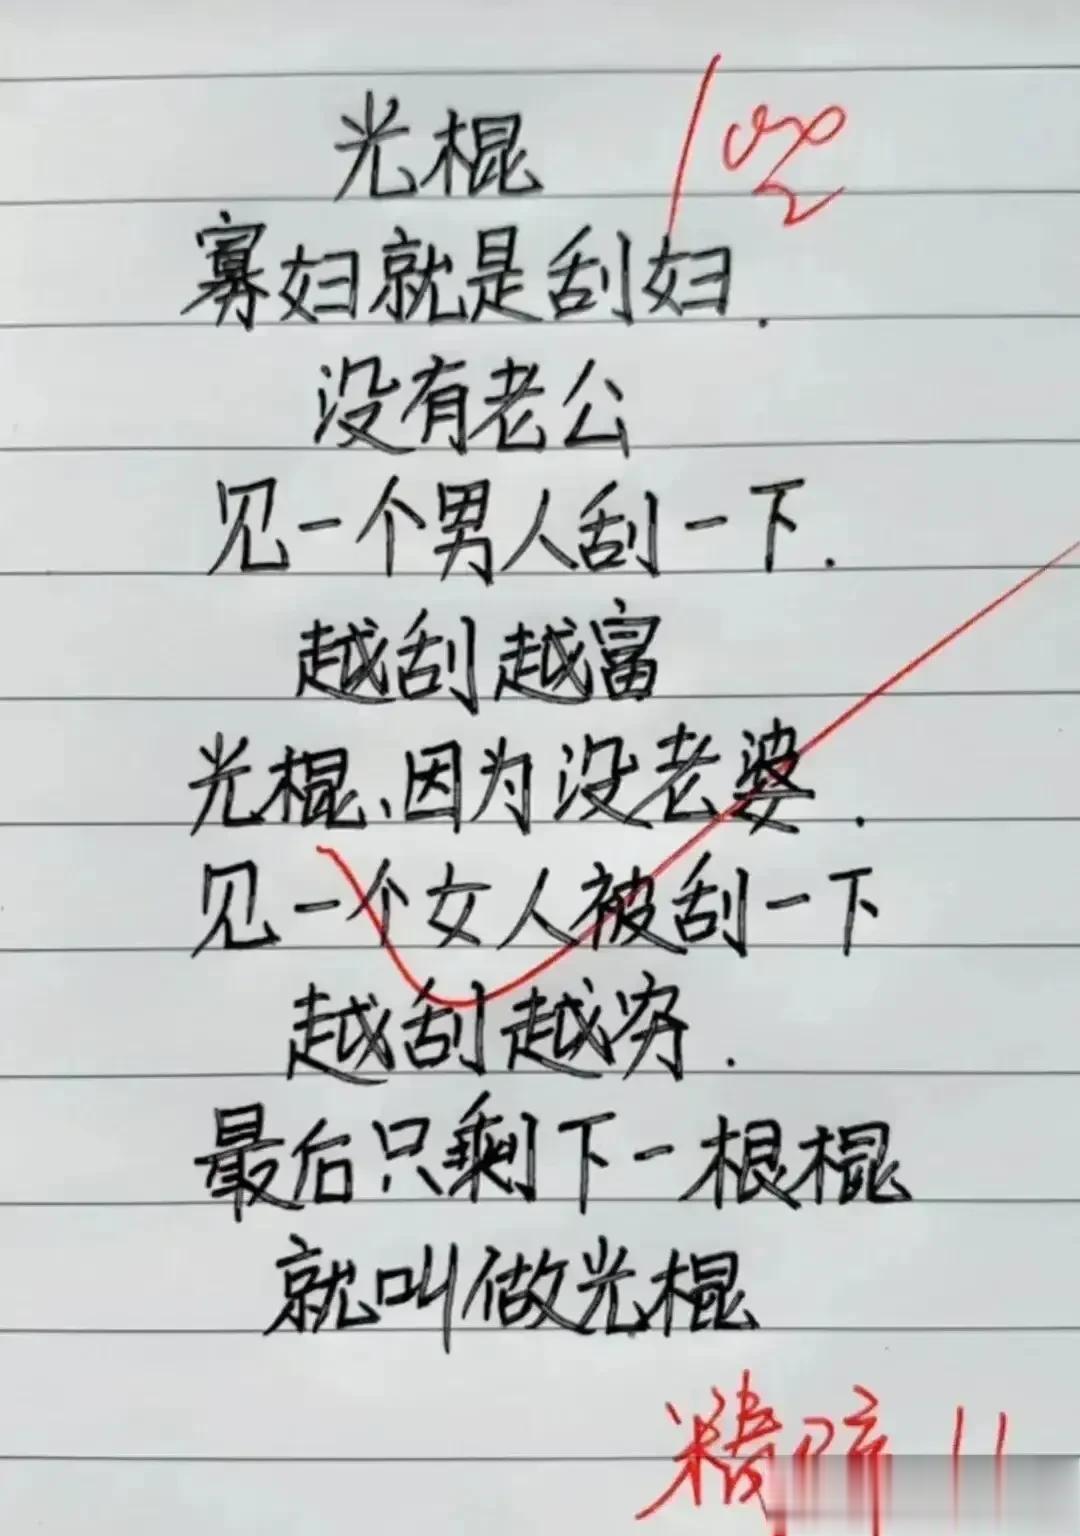 光棍
100
寡妇就是刮妇.
没有老公
见一个男人刮一下.
越刮越富
光棍、因为没老婆.
见一个女人被刮一下
越刮越穷.
最后只剩下一根棍
就叫做光棍
精辟!!